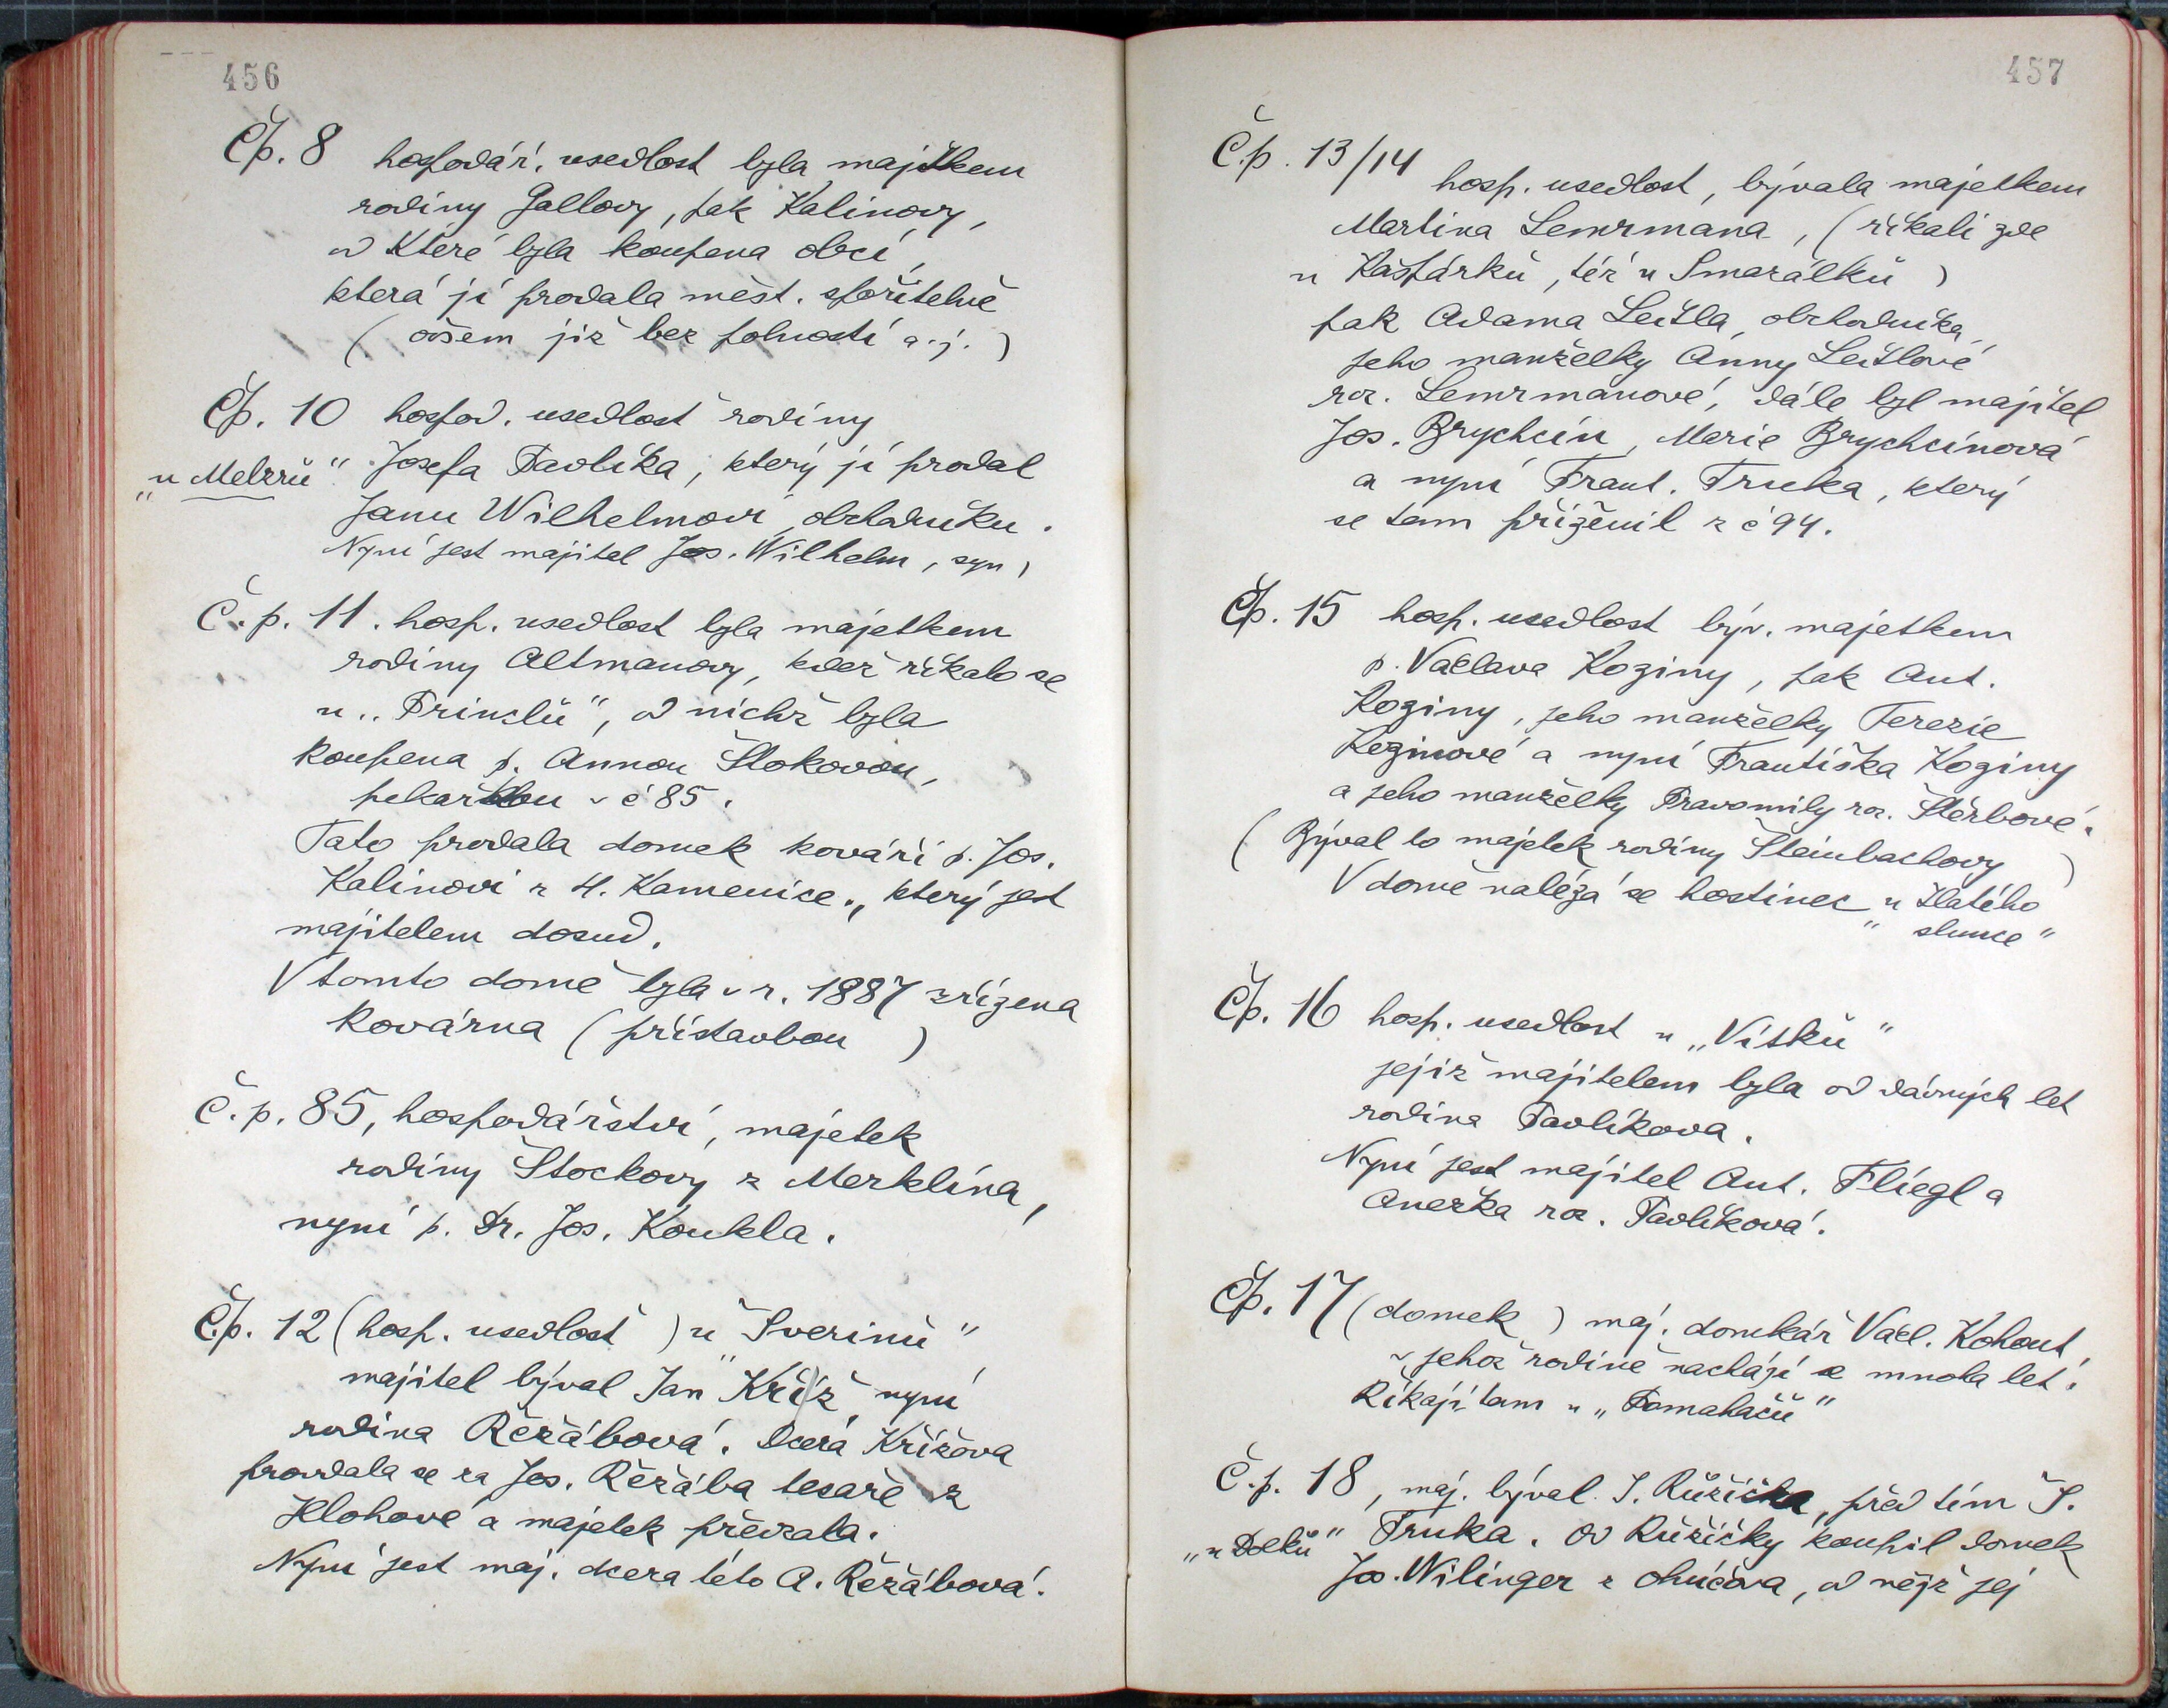 456
Čp. 8 hospodář. usedlost byla majetkem
rodiny Gallovy, pak Kalinovy,
od které byla koupena obcí,
která ji prodala měst. spořitelně
(ovšem již bez polností a. j.)
Čp. 10 hospod. usedlost rodiny
„u Melzrů“ Josefa Pavlíka, který ji prodal
Janu Wilhelmovi, obchodníku.
Nyní jest majitel Jos. Wilhelm, syn,
Č. p. 11. hosp. usedlost byla majetkem
rodiny Altmanovy, kdež říkalo se
u „Princlů“, od nichž byla
koupena p. Annou Štokovou,
pekařkou v č 85.
Tato prodala domek kováři p. Jos.
Kalinovi z H. Kamenice, který jest
majitelem dosud.
V tomto domě byla v r. 1887 zřízena
kovárna (přístavbou)
Č. p. 85, hospodářství, majetek
rodiny Štockovy z Merklína,
nyní p. Dr. Jos. Koukla.
Č.p. 12 (hosp. usedlost) u „Sverinů“
majitel býval Jan Kříž, nyní
rodina Řežábová. Dcera Křížova
provdala se za Jos. Řežába tesaře z
Hlohové a majetek převzala.
Nyní jest maj. dcera této A. Řežábová.
457
Č.p. 13/14 hosp. usedlost, bývala majetkem
Martina Lemrmana, (říkali zde
u Kašpárků, též u Smarálků)
pak Adama Leitla, obchodníka,
jeho manželky Anny Leitlové
roz. Lemrmanové, dále byl majitel
Jos. Brychcín, Marie Brychcínová
a nyní Frant. Trnka, který
se tam přiženil z č 94.
Čp. 15 hosp. usedlost býv. majetkem
p. Václava Koziny, pak Ant.
Koziny, jeho manželky Terezie
Kozinové a nyní Františka Koziny
a jeho manželky Pravomily roz. Štěrbové.
(Býval to majetek rodiny Steinbachovy)
V domě nalézá se hostinec „u zlatého
slunce“
Čp. 16 hosp. usedlost u „Vítků“
jejíž majitelem byla od dávných let
rodina Pavlíkova.
Nyní jest majitel Ant. Fliegl a
Anežka roz. Pavlíková.
Čp. 17 (domek) maj. domkář Václ. Kohout,
v jehož rodině nachází se mnoha let.
Říkají tam u „Pomahačů“
Č.p. 18, maj. býval J. Růžička, před tím Š.
„u Dolků“ Trnka. Od Růžičky koupil domek
Jos. Wilinger z Chučova, od nějž jej